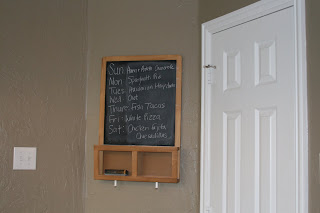 Sun: Ham + Potato Casserole
Mon: Spaghetti Pie
Tues: Hawaiian Haystacks
Wed: Out
Thur: Fish Tacos
Fri: White Pizza
Sat: Chicken Fajita
Quesadillas